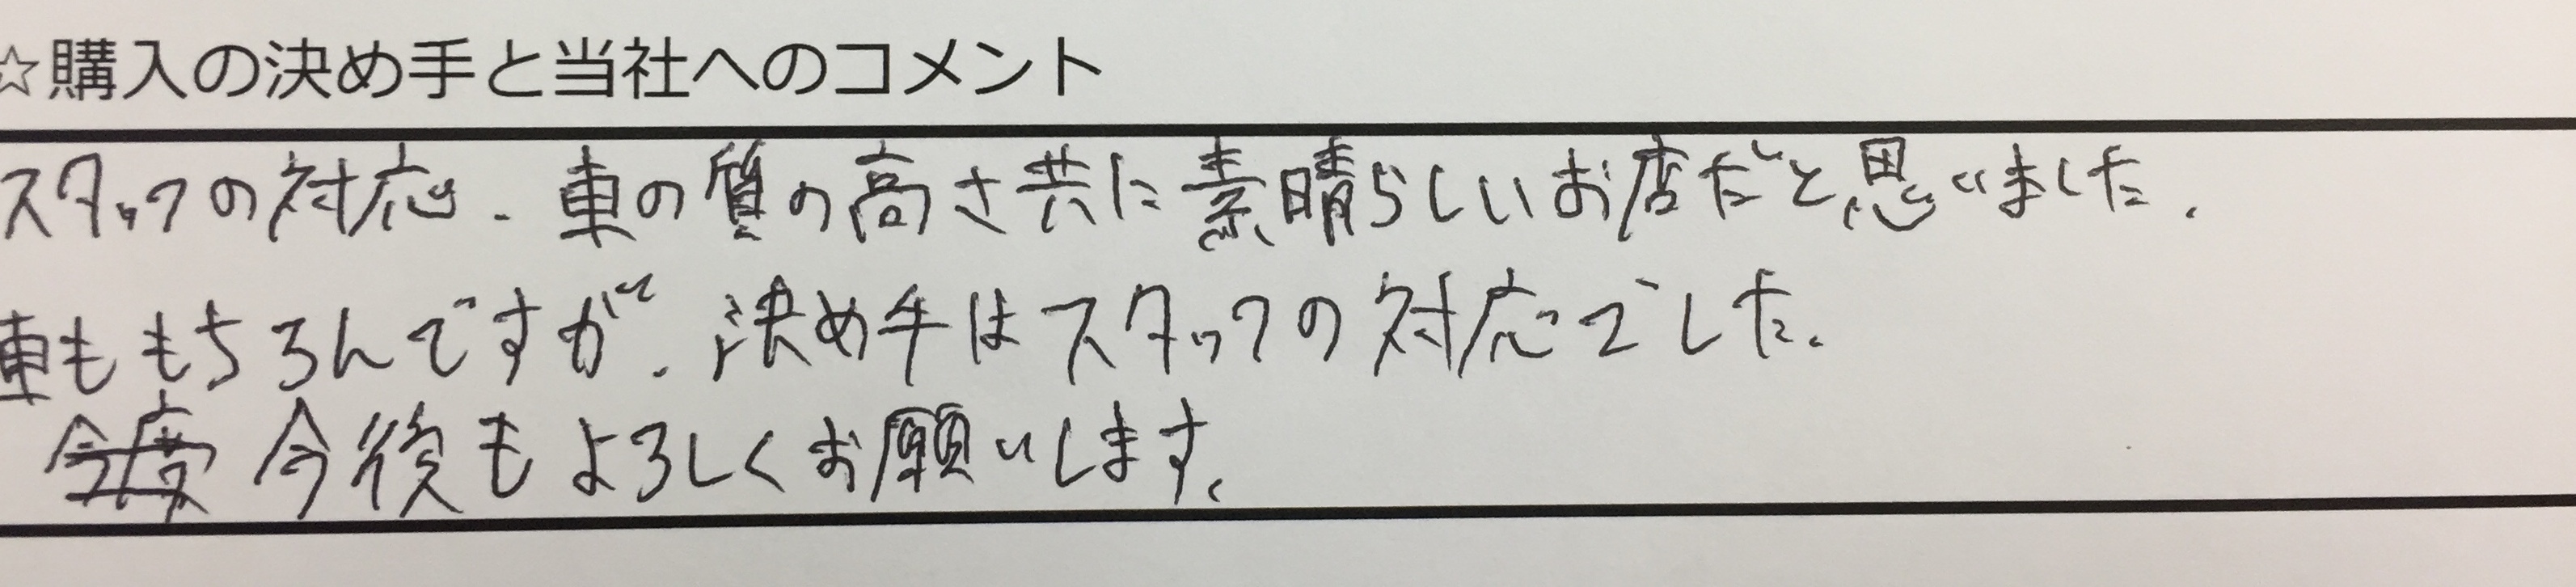 ☆購入の決め手と当社へのコメント
スタッフの対応、車の質の高さ共に素晴らしいお店だと思いました。
車ももちろんですが、決め手はスタッフの対応でした。
今度 今後もよろしくお願いします。